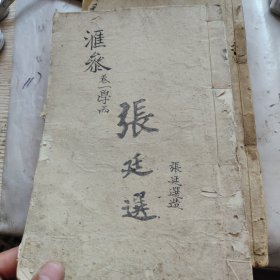 滙參卷一學而
張廷選
張廷選造